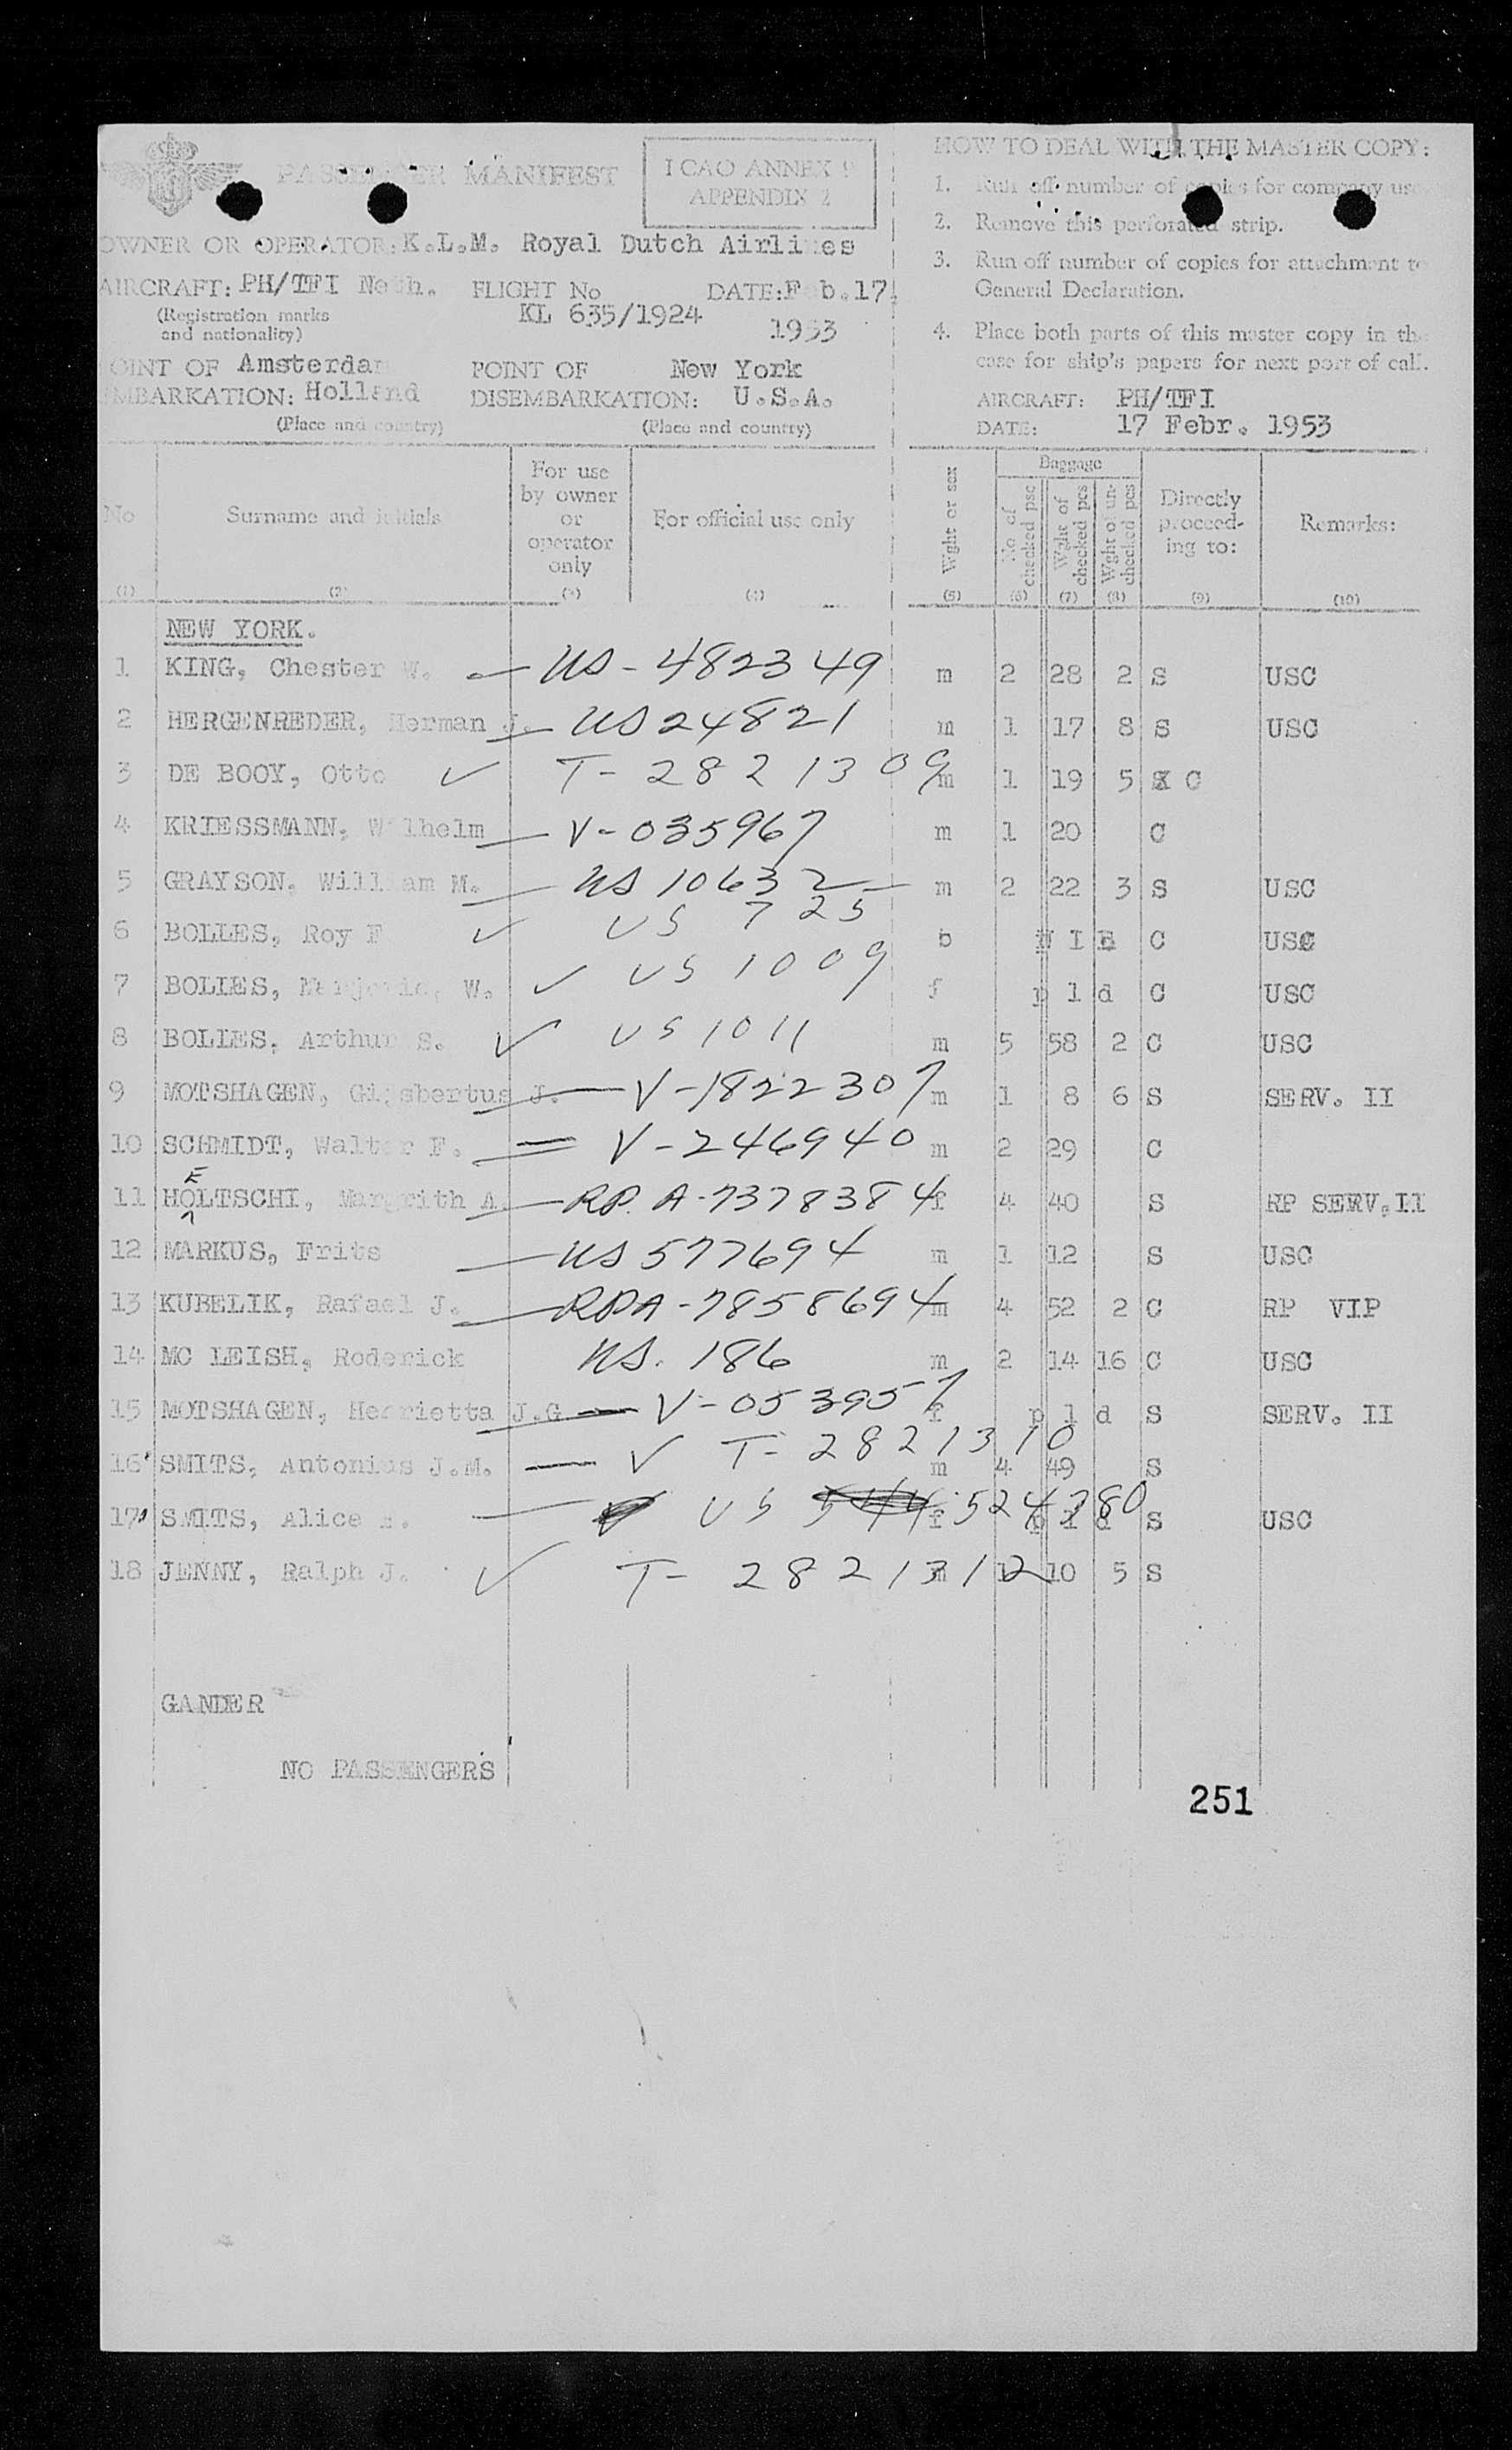 PASSENGER MANIFEST
ICAO ANNEX 9
APPENDIX 2
OWNER OR OPERATOR: K.L.M. Royal Dutch Airlines
AIRCRAFT: PH/TFI Neth. FLIGHT No DATE: Feb. 17.
(Registration marks and nationality) KL 635/1924 1953
POINT OF Amsterdam POINT OF New York
EMBARKATION: Holland DISEMBARKATION: U.S.A.
(Place and country) (Place and country)
HOW TO DEAL WITH THE MASTER COPY:
1. Run off number of copies for company use
2. Remove this perforated strip.
3. Run off number of copies for attachment to
General Declaration.
4. Place both parts of this master copy in the
case for ship's papers for next port of call.
AIRCRAFT: PH/TFI
DATE: 17 Febr. 1953
No Surname and initials For use by owner or operator only For official use only Wght or sex Baggage No of checked psc Wght of checked pcs Wght of un-checked pcs Directly proceed-ing to: Remarks:
(1) (2) (3) (4) (5) (6) (7) (8) (9) (10)
NEW YORK.
1 KING, Chester W. — US - 482349 m 2 28 2 S USC
2 HERGENREDER, Herman J. — US 24821 m 1 17 8 S USC
3 DE BOOY, Otto ✓ T- 2821309 m 1 19 5 C
4 KRIESSMANN, Wilhelm — V- 035967 m 1 20 C
5 GRAYSON, William M. — US 10632 — m 2 22 3 S USC
6 BOLLES, Roy F ✓ US 725 b C USC
7 BOLLES, Marjorie, W. ✓ US 1009 f p l d C USC
8 BOLLES, Arthur S. ✓ US 1011 m 5 58 2 C USC
9 MOTSHAGEN, Gijsbertus J. — V-1822307 m 1 8 6 S SERV. II
10 SCHMIDT, Walter F. = V-246940 m 2 29 C
E
11 HOLTSCHI, Margrith A. — RP. A-7378384 f 4 40 S RP SERV. II
12 MARKUS, Frits — US 577694 m 1 12 S USC
13 KUBELIK, Rafael J. — RPA-7858694 m 4 52 2 C RP VIP
14 MC LEISH, Roderick US. 186 m 2 14 16 C USC
15 MOTSHAGEN, Henrietta J.G — V-053957 f p l d S SERV. II
16 SMITS, Antonius J.M. — ✓ T- 2821310 m 4 49 S
17 SMITS, Alice — US 524780 f p l d S USC
18 JENNY, Ralph J. ✓ T- 2821312 m 1 10 5 S
GANDER
NO PASSENGERS
251